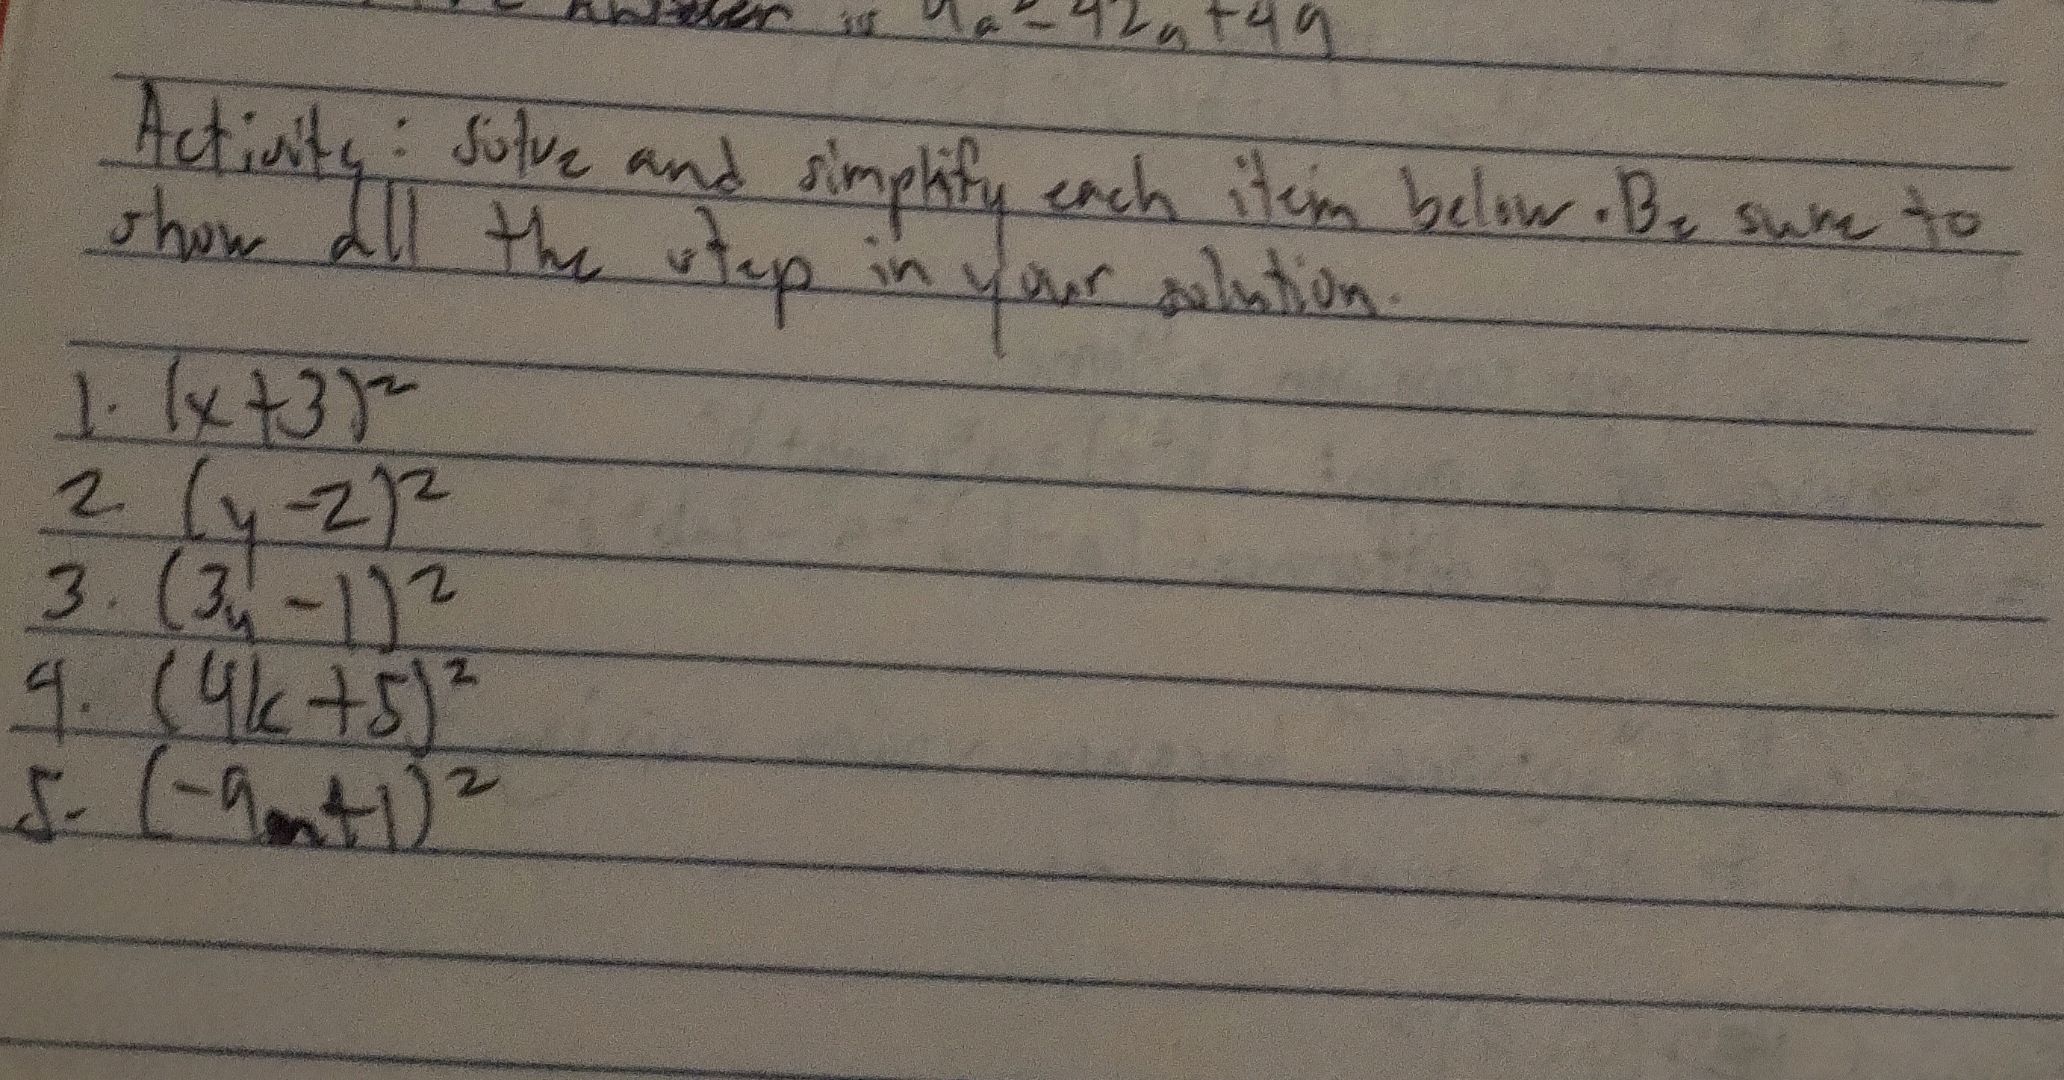 answer is 9a²-42a+49
Activity: solve and simplify each item below. Be sure to
show all the step in your solution.
1. (x+3)²
2. (y-2)²
3. (3y-1)²
4. (4k+5)²
5. (-9m+1)²